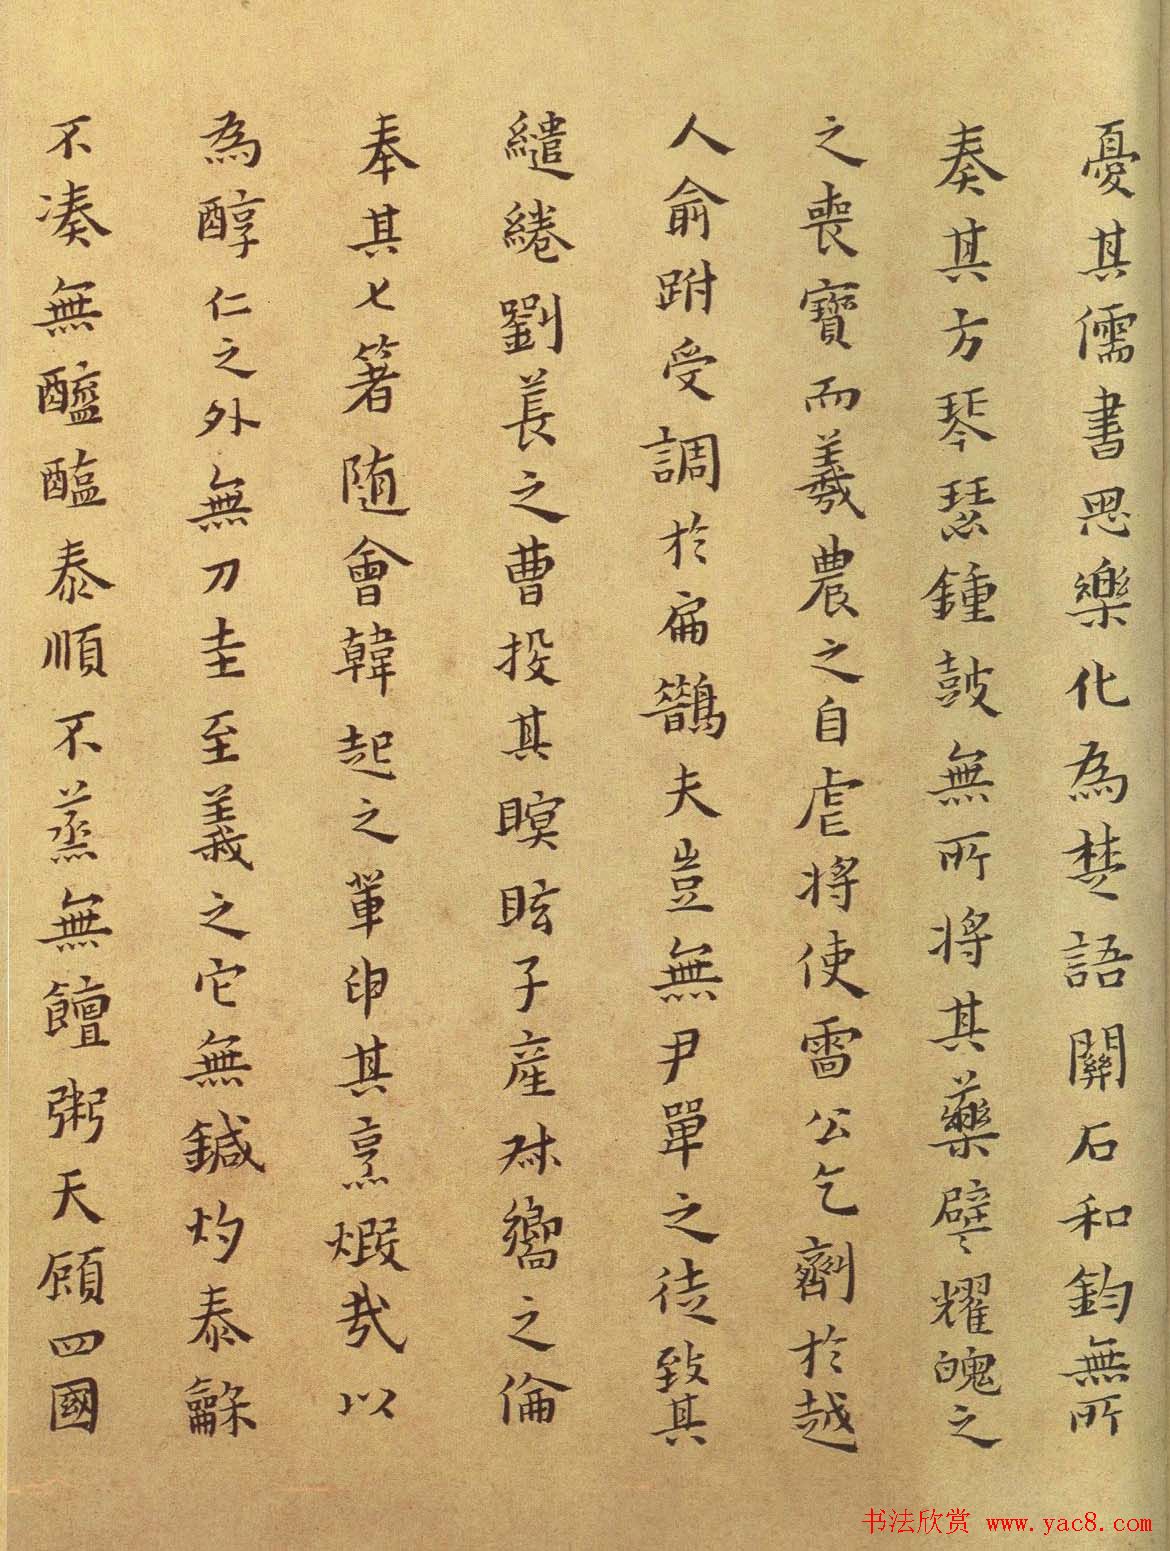 憂其儒書思樂化為楚語關石和鈞無所
奏其方琴瑟鍾鼓無所將其藥譬之耀魄之
之喪寶而羲農之自虐將使雷公乞劑於越
人俞跗受調於扁鵲夫豈無尹單之徒致其
繾綣劉萇之曹投其瞑眩子產叔嚮之倫
奉其匕箸隨會韓起之輩申其烹煅哉以
為醇仁之外無刀圭至義之它無鍼灼泰龢
不湊無醯醢泰順不蒸無饘粥天顧四國
书法欣赏 www.yac8.com